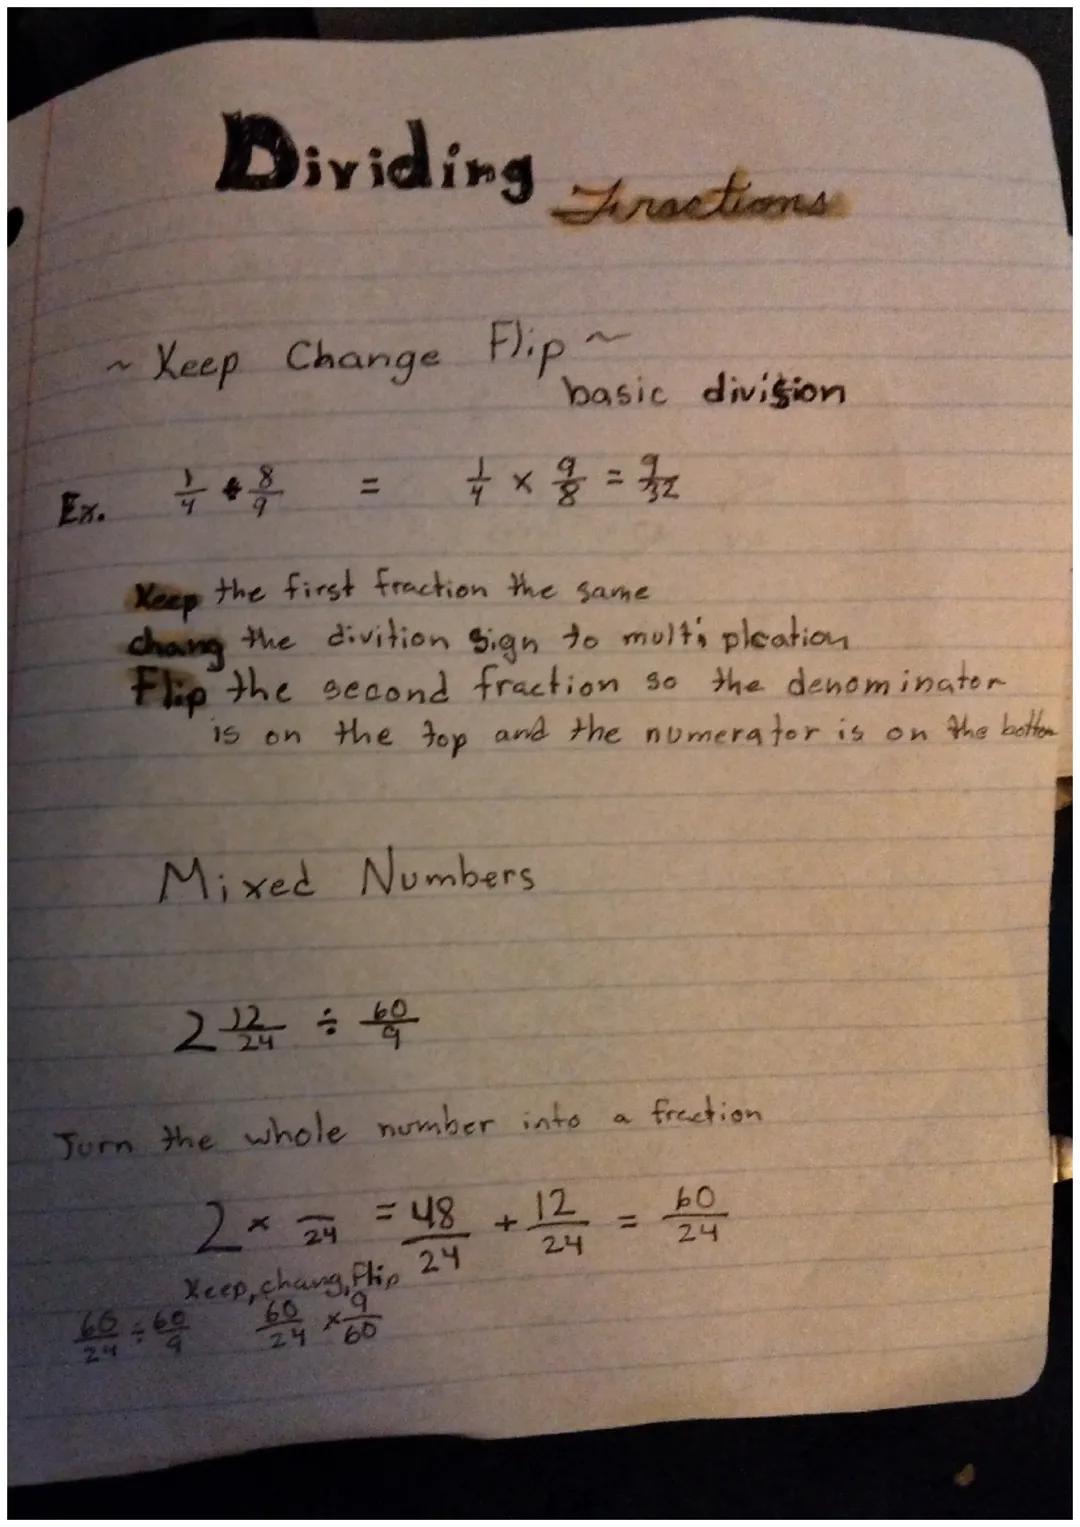 Dividing Fractions
~ Keep Change Flip ~
basic division
Ex. 1/4 ÷ 8/9 = 1/4 × 9/8 = 9/32
Keep the first fraction the same
chang the divition sign to multi plcation
Flip the second fraction so the denominator
is on the top and the numerator is on the bottom
Mixed Numbers
2 12/24 ÷ 60/9
Turn the whole number into a fraction
2 × /24 = 48/24 + 12/24 = 60/24
Keep, chang, flip
60/24 ÷ 60/9 60/24 × 9/60